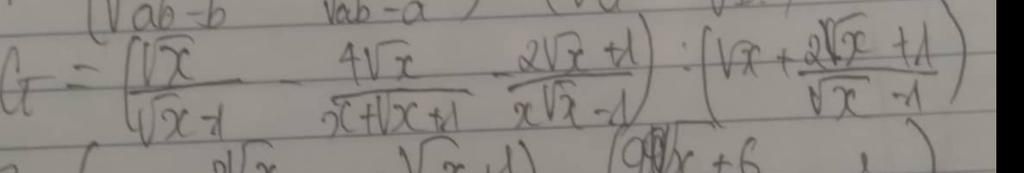 (√ab-b √ab-a)
G = (√x/(√x-1) - 4√x/(x+√x+1) - (2√x+1)/(x√x-1)) : (√x + (2√x+1)/(√x-1))
√x √x 1) x+6 )